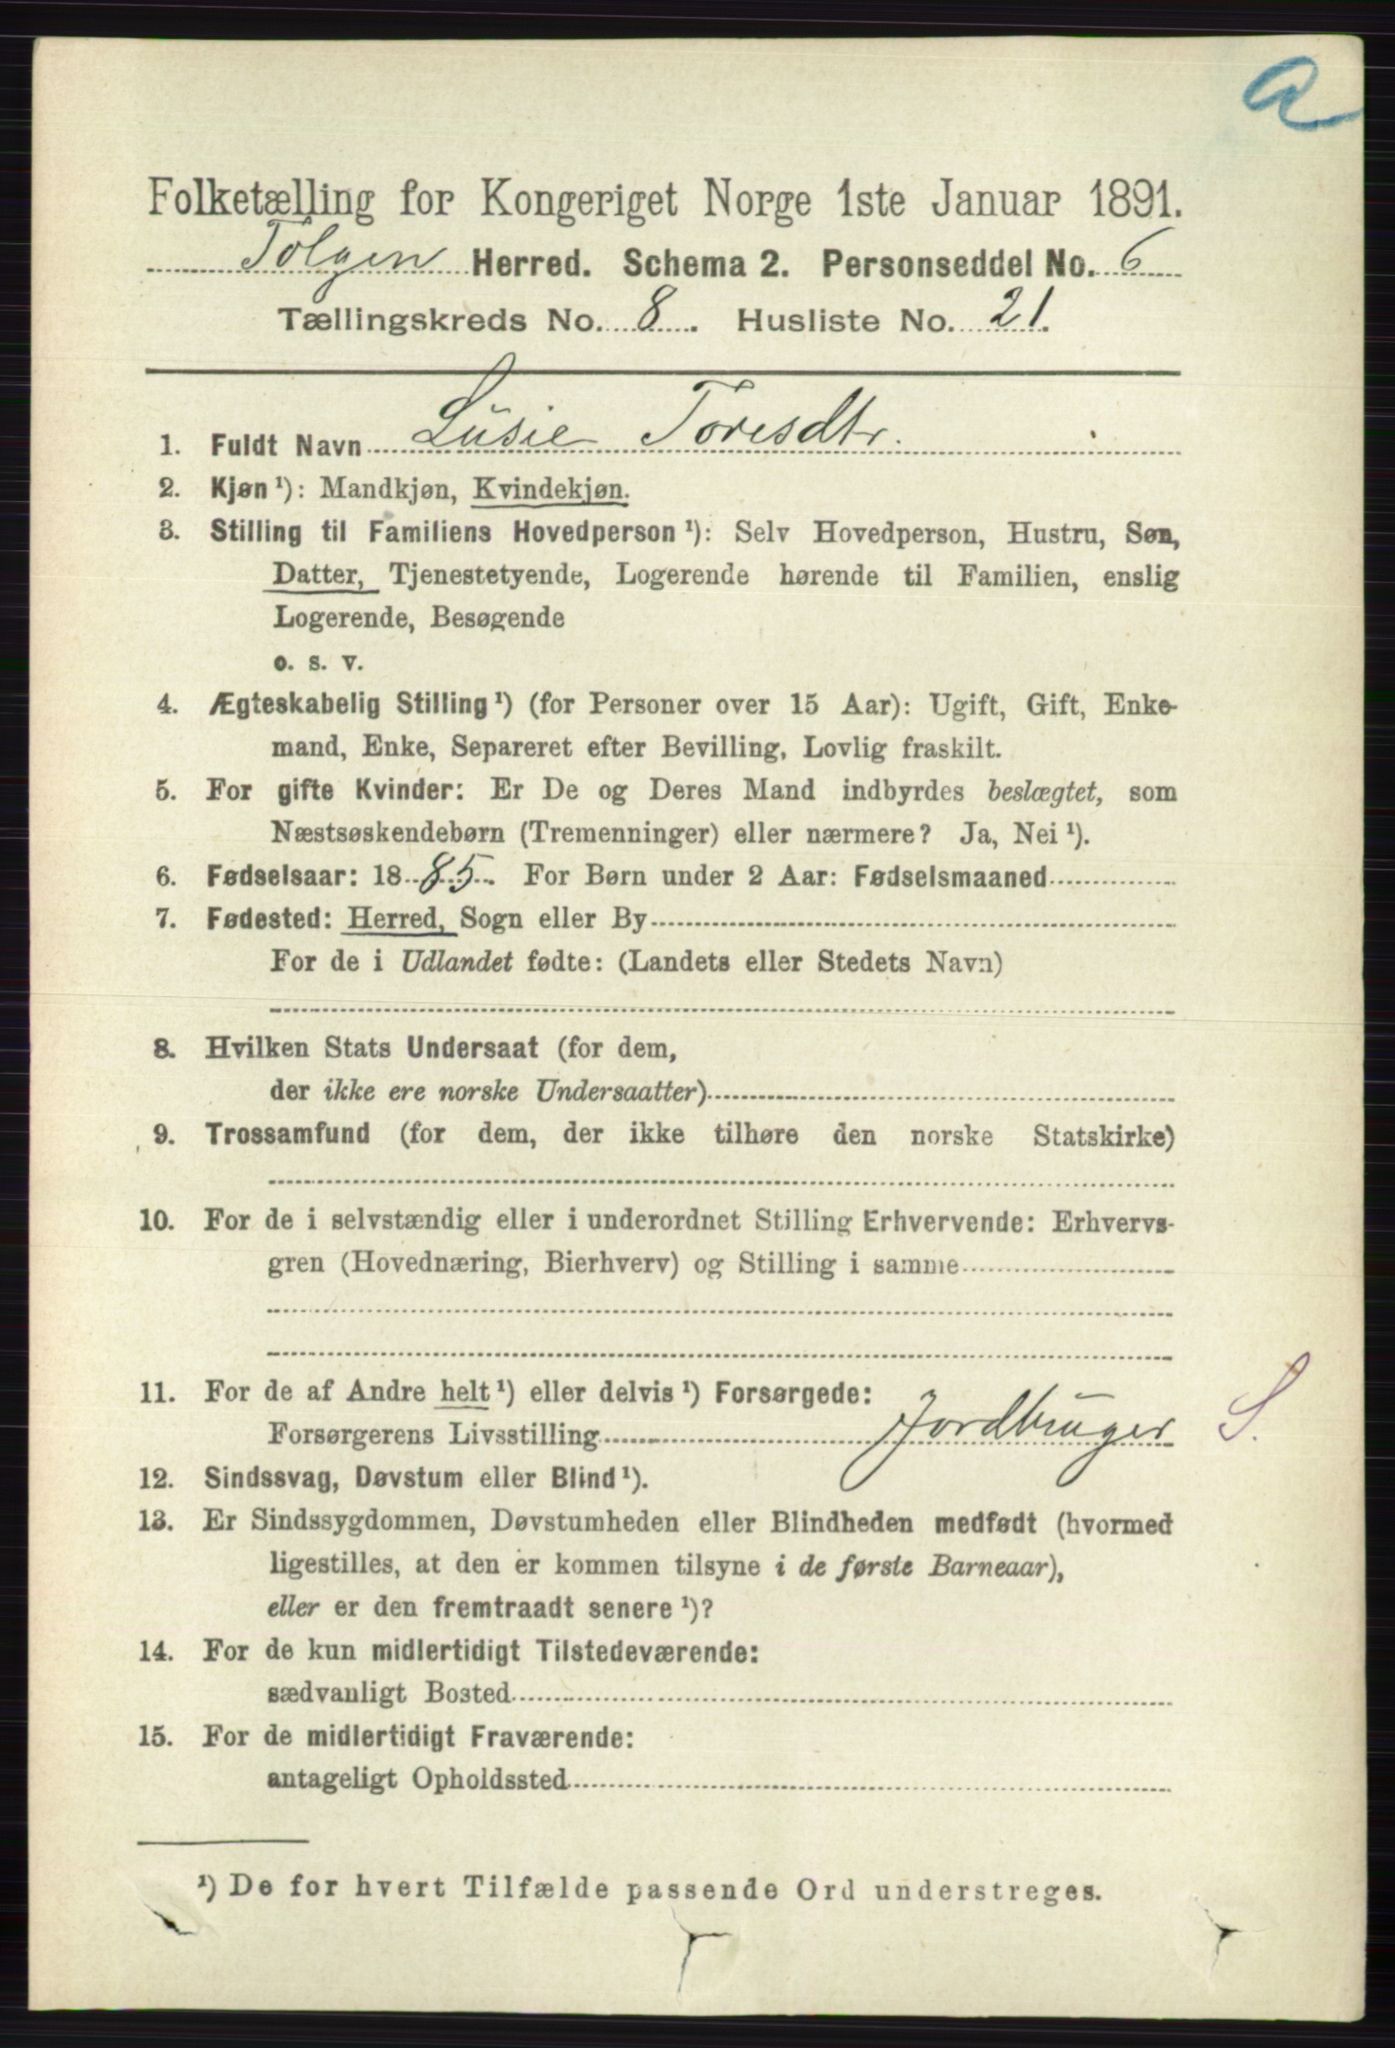 a
Folketælling for Kongeriget Norge 1ste Januar 1891.
Tolgen Herred. Schema 2. Personseddel No. 6
Tællingskreds No. 8. Husliste No. 21.
1. Fuldt Navn Lusie Toresdtr.
2. Kjøn ¹): Mandkjøn, Kvindekjøn.
3. Stilling til Familiens Hovedperson ¹): Selv Hovedperson, Hustru, Søn,
Datter, Tjenestetyende, Logerende hørende til Familien, enslig
Logerende, Besøgende
o. s. v.
4. Ægteskabelig Stilling ¹) (for Personer over 15 Aar): Ugift, Gift, Enke-
mand, Enke, Separeret efter Bevilling, Lovlig fraskilt.
5. For gifte Kvinder: Er De og Deres Mand indbyrdes beslægtet, som
Næstsøskendebørn (Tremenninger) eller nærmere? Ja, Nei ¹).
6. Fødselsaar: 1885. For Børn under 2 Aar: Fødselsmaaned
7. Fødested: Herred, Sogn eller By
For de i Udlandet fødte: (Landets eller Stedets Navn)
8. Hvilken Stats Undersaat (for dem,
der ikke ere norske Undersaatter)
9. Trossamfund (for dem, der ikke tilhøre den norske Statskirke)
10. For de i selvstændig eller i underordnet Stilling Erhvervende: Erhvervs-
gren (Hovednæring, Bierhverv) og Stilling i samme
11. For de af Andre helt ¹) eller delvis ¹) Forsørgede:
Forsørgerens Livsstilling Jordbruger S.
12. Sindssvag, Døvstum eller Blind ¹).
13. Er Sindssygdommen, Døvstumheden eller Blindheden medfødt (hvormed
ligestilles, at den er kommen tilsyne i de første Barneaar),
eller er den fremtraadt senere ¹)?
14. For de kun midlertidigt Tilstedeværende:
sædvanligt Bosted
15. For de midlertidigt Fraværende:
antageligt Opholdssted
¹) De for hvert Tilfælde passende Ord understreges.